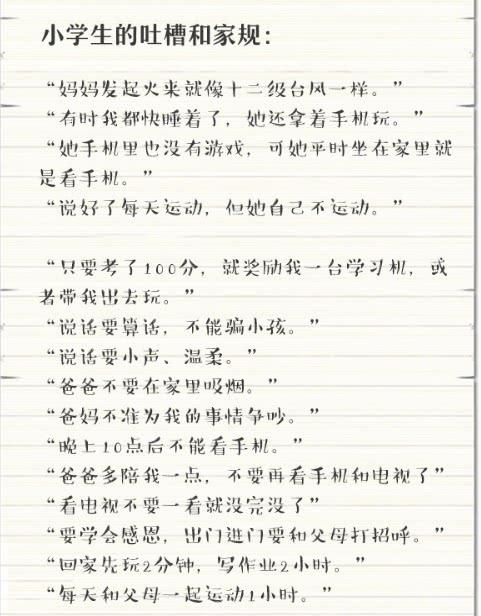 小学生的吐槽和家规：
“妈妈发起火来就像十二级台风一样。”
“有时我都快睡着了，她还拿着手机玩。”
“她手机里也没有游戏，可她平时坐在家里就
是看手机。”
“说好了每天运动，但她自己不运动。”
“只要考了100分，就奖励我一台学习机，或
者带我出去玩。”
“说话要算话，不能骗小孩。”
“说话要小声、温柔。”
“爸爸不要在家里吸烟。”
“爸妈不准为我的事情争吵。”
“晚上10点后不能看手机。”
“爸爸多陪我一点，不要再看手机和电视了”
“看电视不要一看就没完没了”
“要学会感恩，出门进门要和父母打招呼。”
“回家先玩2分钟，写作业2小时。”
“每天和父母一起运动1小时。”